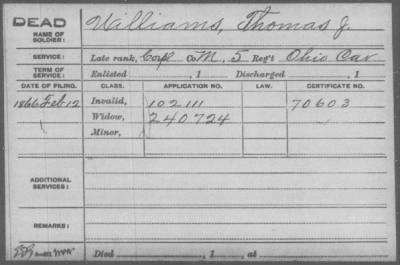 DEAD
NAME OF SOLDIER: Williams, Thomas J.
SERVICE: Late rank, Corpl Co. M, 5 Reg't Ohio Cav
TERM OF SERVICE: Enlisted , 1 Discharged , 1
DATE OF FILING. CLASS. APPLICATION NO. LAW. CERTIFICATE NO.
1866 Feb 12 Invalid, 102111 70603
Widow, 240724
Minor,
ADDITIONAL SERVICES:
REMARKS:
Died , 1 , at